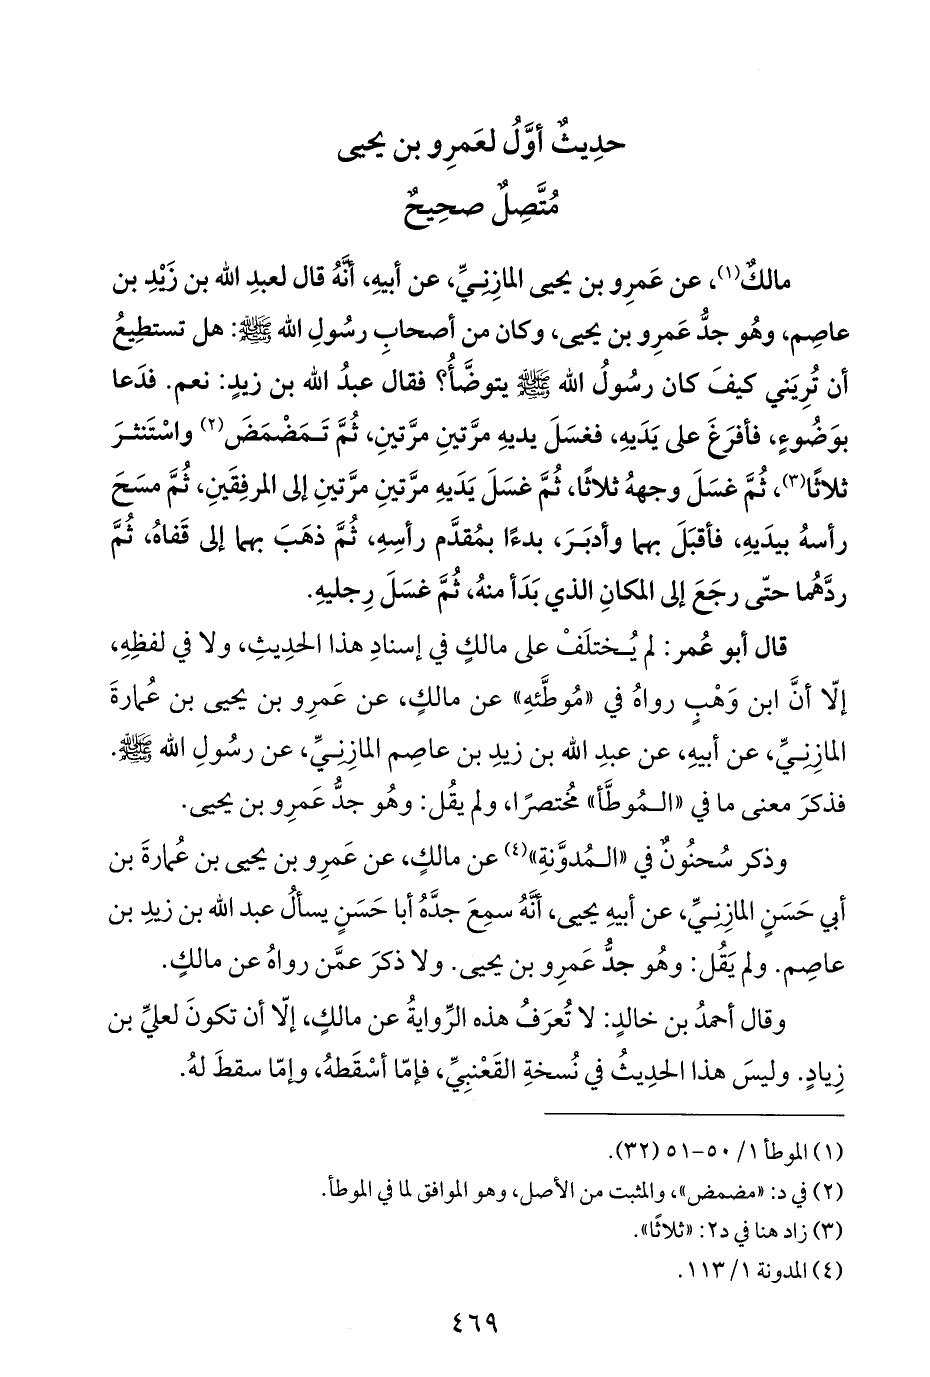 حدِيثٌ أوَّلُ لعَمرِو بن يحيى
مُتَّصِلٌ صحِيحٌ
مالكٌ(١)، عن عَمرِو بن يحيى المازِنيِّ، عن أبيهِ، أنَّهُ قال لعبدِ الله بن زَيْدِ بن
عاصِم، وهُو جدُّ عَمرِو بن يحيى، وكان من أصحابِ رسُولِ الله ﷺ: هل تستطِيعُ
أن تُريَني كيفَ كان رسُولُ الله ﷺ يتوضَّأُ؟ فقال عبدُ الله بن زيدٍ: نعم. فدَعا
بوَضُوءٍ، فأفرَغَ على يَدَيهِ، فغسَلَ يديهِ مرَّتينِ مرَّتينِ، ثُمَّ تَـمَضْمَضَ(٢) واسْتَنثرَ
ثلاثًا(٣)، ثُمَّ غسَلَ وجههُ ثلاثًا، ثُمَّ غسَلَ يَدَيهِ مرَّتينِ مرَّتينِ إلى المرفِقَينِ، ثُمَّ مسَحَ
رأسهُ بيدَيهِ، فأقبَلَ بهما وأدبَرَ، بدءًا بمُقدَّم رأسِهِ، ثُمَّ ذهَبَ بهما إلى قَفاهُ، ثُمَّ
ردَّهُما حتّى رجَعَ إلى المكانِ الذي بَدَأ منهُ، ثُمَّ غسَلَ رِجليهِ.
قال أبو عُمر: لم يُـختلَفْ على مالكٍ في إسنادِ هذا الحَدِيثِ، ولا في لفظِهِ،
إلّا أنَّ ابن وَهْبٍ رواهُ في «مُوطَّئهِ» عن مالكٍ، عن عَمرِو بن يحيى بن عُمارةَ
المازِنيِّ، عن أبيهِ، عن عبدِ الله بن زيدِ بن عاصِم المازِنيِّ، عن رسُولِ الله ﷺ.
فذكرَ معنى ما في «الـمُوطَّأ» مُختصرًا، ولم يقُل: وهُو جدُّ عَمرِو بن يحيى.
وذكر سُحنُونٌ في «الـمُدوَّنةِ»(٤) عن مالكٍ، عن عَمرِو بن يحيى بن عُمارةَ بن
أبي حَسَنٍ المازِنيِّ، عن أبيهِ يحيى، أنَّهُ سمِعَ جدَّهُ أبا حَسَنٍ يسألُ عبد الله بن زيدِ بن
عاصِم. ولم يَقُل: وهُو جدُّ عَمرِو بن يحيى. ولا ذكرَ عمَّن رواهُ عن مالكٍ.
وقال أحمدُ بن خالدٍ: لا تُعرَفُ هذه الرِّوايةُ عن مالكٍ، إلّا أن تكونَ لعليِّ بن
زِيادٍ. وليسَ هذا الحدِيثُ في نُسخةِ القَعْنبيِّ، فإمّا أسْقَطهُ، وإمّا سقطَ لهُ.
(١) الموطأ ١/ ٥٠-٥١ (٣٢).
(٢) في د: «مضمض»، والمثبت من الأصل، وهو الموافق لما في الموطأ.
(٣) زاد هنا في د٢: «ثلاثًا».
(٤) المدونة ١/ ١١٣.
٤٦٩